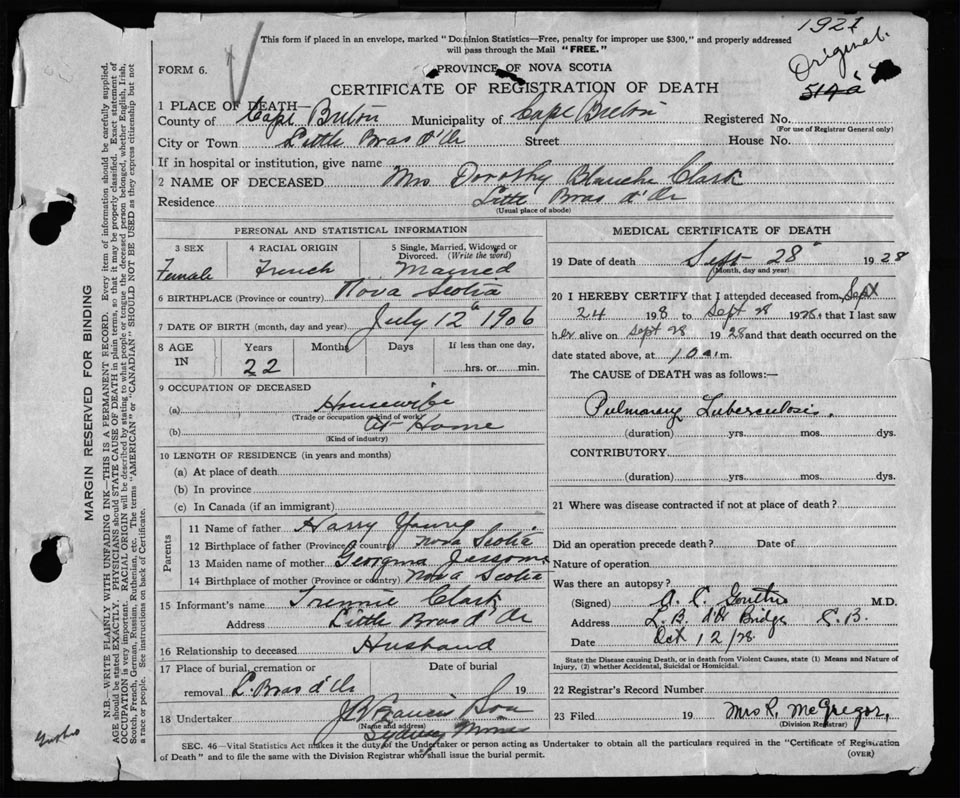 1927
Original.
514a
This form if placed in an envelope, marked "Dominion Statistics—Free, penalty for improper use $300," and properly addressed
will pass through the Mail "FREE."
FORM 6.
PROVINCE OF NOVA SCOTIA
CERTIFICATE OF REGISTRATION OF DEATH
1 PLACE OF DEATH—
County of Cape Breton Municipality of Cape Breton Registered No.
(For use of Registrar General only)
City or Town Little Bras d'Or Street House No.
If in hospital or institution, give name
2 NAME OF DECEASED Mrs Dorothy Blanche Clark
Residence Little Bras d'Or
(Usual place of abode)
PERSONAL AND STATISTICAL INFORMATION
3 SEX 4 RACIAL ORIGIN 5 Single, Married, Widowed or
Divorced. (Write the word)
Female French Married
6 BIRTHPLACE (Province or country) Nova Scotia
7 DATE OF BIRTH (month, day and year) July 12" 1906
8 AGE IN Years Months Days If less than one day,
22 hrs. or min.
9 OCCUPATION OF DECEASED
(a) Housewife
(Trade or occupation or kind of work)
(b) At Home
(Kind of industry)
10 LENGTH OF RESIDENCE (in years and months)
(a) At place of death
(b) In province
(c) In Canada (if an immigrant)
Parents
11 Name of father Harry Young
12 Birthplace of father (Province or country) Nova Scotia
13 Maiden name of mother Georgina Jessome
14 Birthplace of mother (Province or country) Nova Scotia
15 Informant's name Clark
Address Little Bras d'Or
16 Relationship to deceased Husband
17 Place of burial, cremation or Date of burial
removal L. Bras d'Or 19
18 Undertaker Son
(Name and address)
Sydney Mines
MEDICAL CERTIFICATE OF DEATH
19 Date of death Sept 28" 1928
(Month, day and year)
20 I HEREBY CERTIFY that I attended deceased from Sept
24 198 to Sept 28 1928, that I last saw
her alive on Sept 28 1928 and that death occurred on the
date stated above, at 10 a.m.
The CAUSE of DEATH was as follows:—
Pulmonary Tuberculosis.
(duration) yrs. mos. dys.
CONTRIBUTORY
(duration) yrs. mos. dys.
21 Where was disease contracted if not at place of death?
Did an operation precede death? Date of
Nature of operation
Was there an autopsy?
(Signed) M.D.
Address L. B. d'Or Bridge C.B.
Date Oct 12/28
State the Disease causing Death, or in death from Violent Causes, state (1) Means and Nature of
Injury, (2) whether Accidental, Suicidal or Homicidal.
22 Registrar's Record Number
23 Filed 19 Mrs R. McGregor,
(Division Registrar)
SEC. 46—Vital Statistics Act makes it the duty of the Undertaker or person acting as Undertaker to obtain all the particulars required in the "Certificate of Registration
of Death" and to file the same with the Division Registrar who shall issue the burial permit.
(OVER)
MARGIN RESERVED FOR BINDING
N.B.—WRITE PLAINLY WITH UNFADING INK—THIS IS A PERMANENT RECORD. Every item of information should be carefully supplied.
AGE should be stated EXACTLY. PHYSICIANS should STATE CAUSE OF DEATH in plain terms, so that it may be properly classified. Exact statement of
OCCUPATION is very important. RACIAL ORIGIN will be described by stating to what people or tongue the deceased person belonged, whether English, Irish,
Scotch, French, German, Russian, Ruthenian, etc. The terms "AMERICAN" or "CANADIAN" SHOULD NOT BE USED as they express citizenship but not
a race or people. See instructions on back of Certificate.